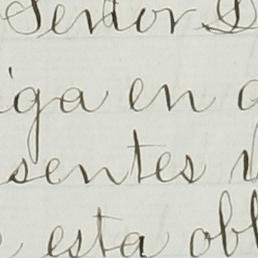 Señor D
iga en
sentes
esta obl